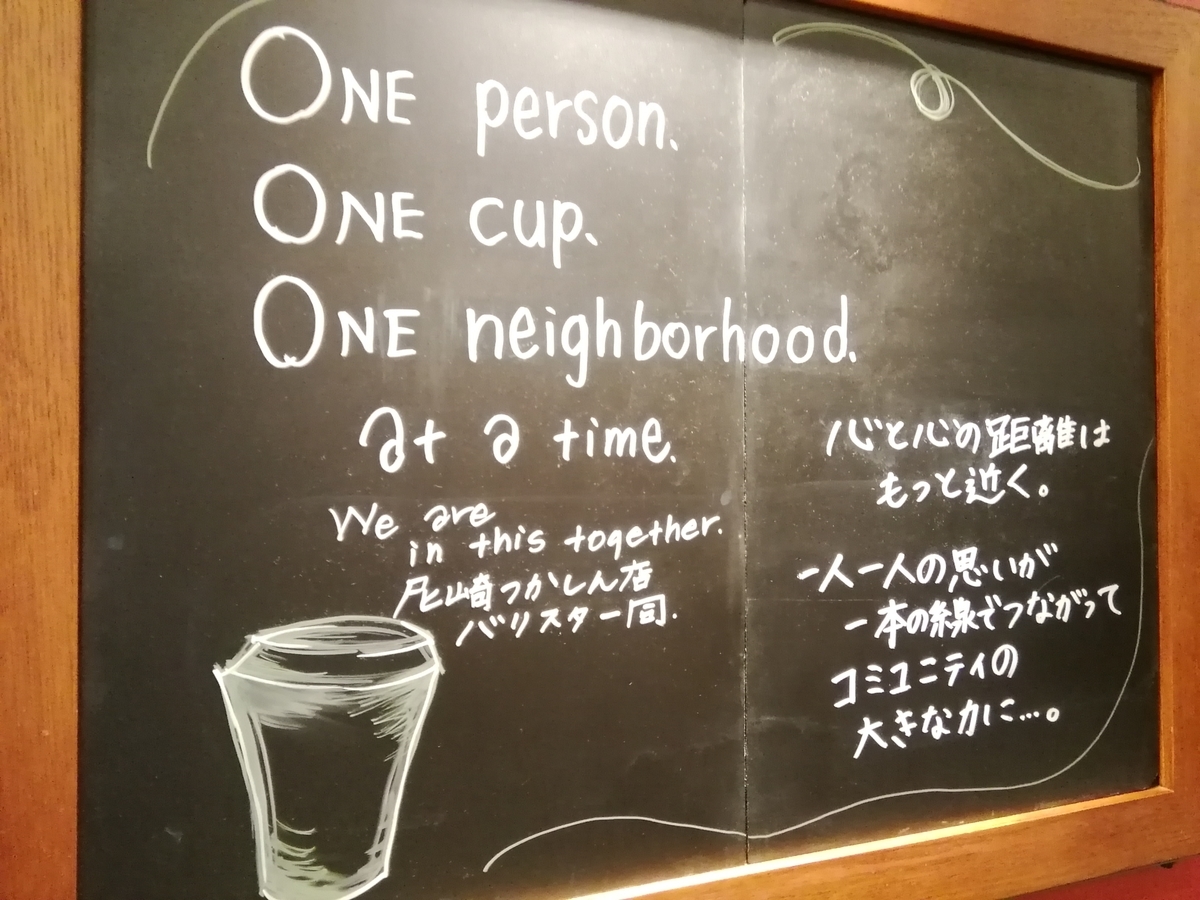 ONE person.
ONE cup.
ONE neighborhood.
at a time.
We are
in this together.
尼崎つかしん店
バリスタ一同.
心と心の距離は
もっと近く。
一人一人の思いが
一本の線でつながって
コミュニティの
大きな力に…。